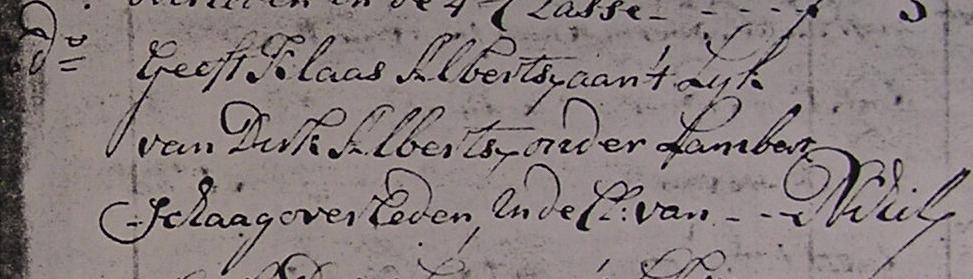 overleden in de 4 Classe - - - - f 3
do Geeft Klaas Albertsz aan't Lyk
van Dirk Albertsz onder Lambert
Schaag overleden, in de Cl: van - - - Nihil